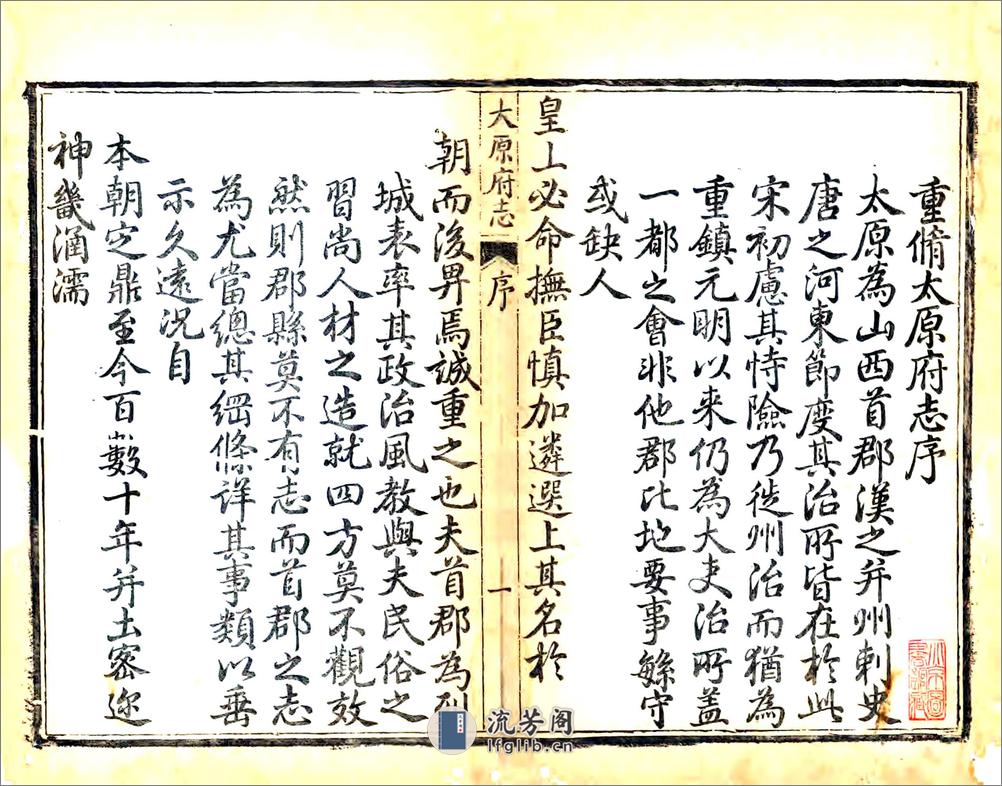 重脩太原府志序
太原為山西首郡漢之并州刺史
唐之河東節度其治所皆在於此
宋初慮其恃險乃徙州治而猶為
重鎮元明以來仍為大吏治所蓋
一都之會非他郡比地要事繇守
或缺人
皇上必命撫臣慎加遴選上其名於
大原府志 序 一
朝而後畀焉誠重之也夫首郡為列
城表率其政治風教與夫民俗之
習尚人材之造就四方莫不觀效
然則郡縣莫不有志而首郡之志
為尤當總其綱條詳其事類以垂
示久遠況自
本朝定鼎至今百數十年并土密邇
神畿涵濡
流芳阁
lfglib.cn